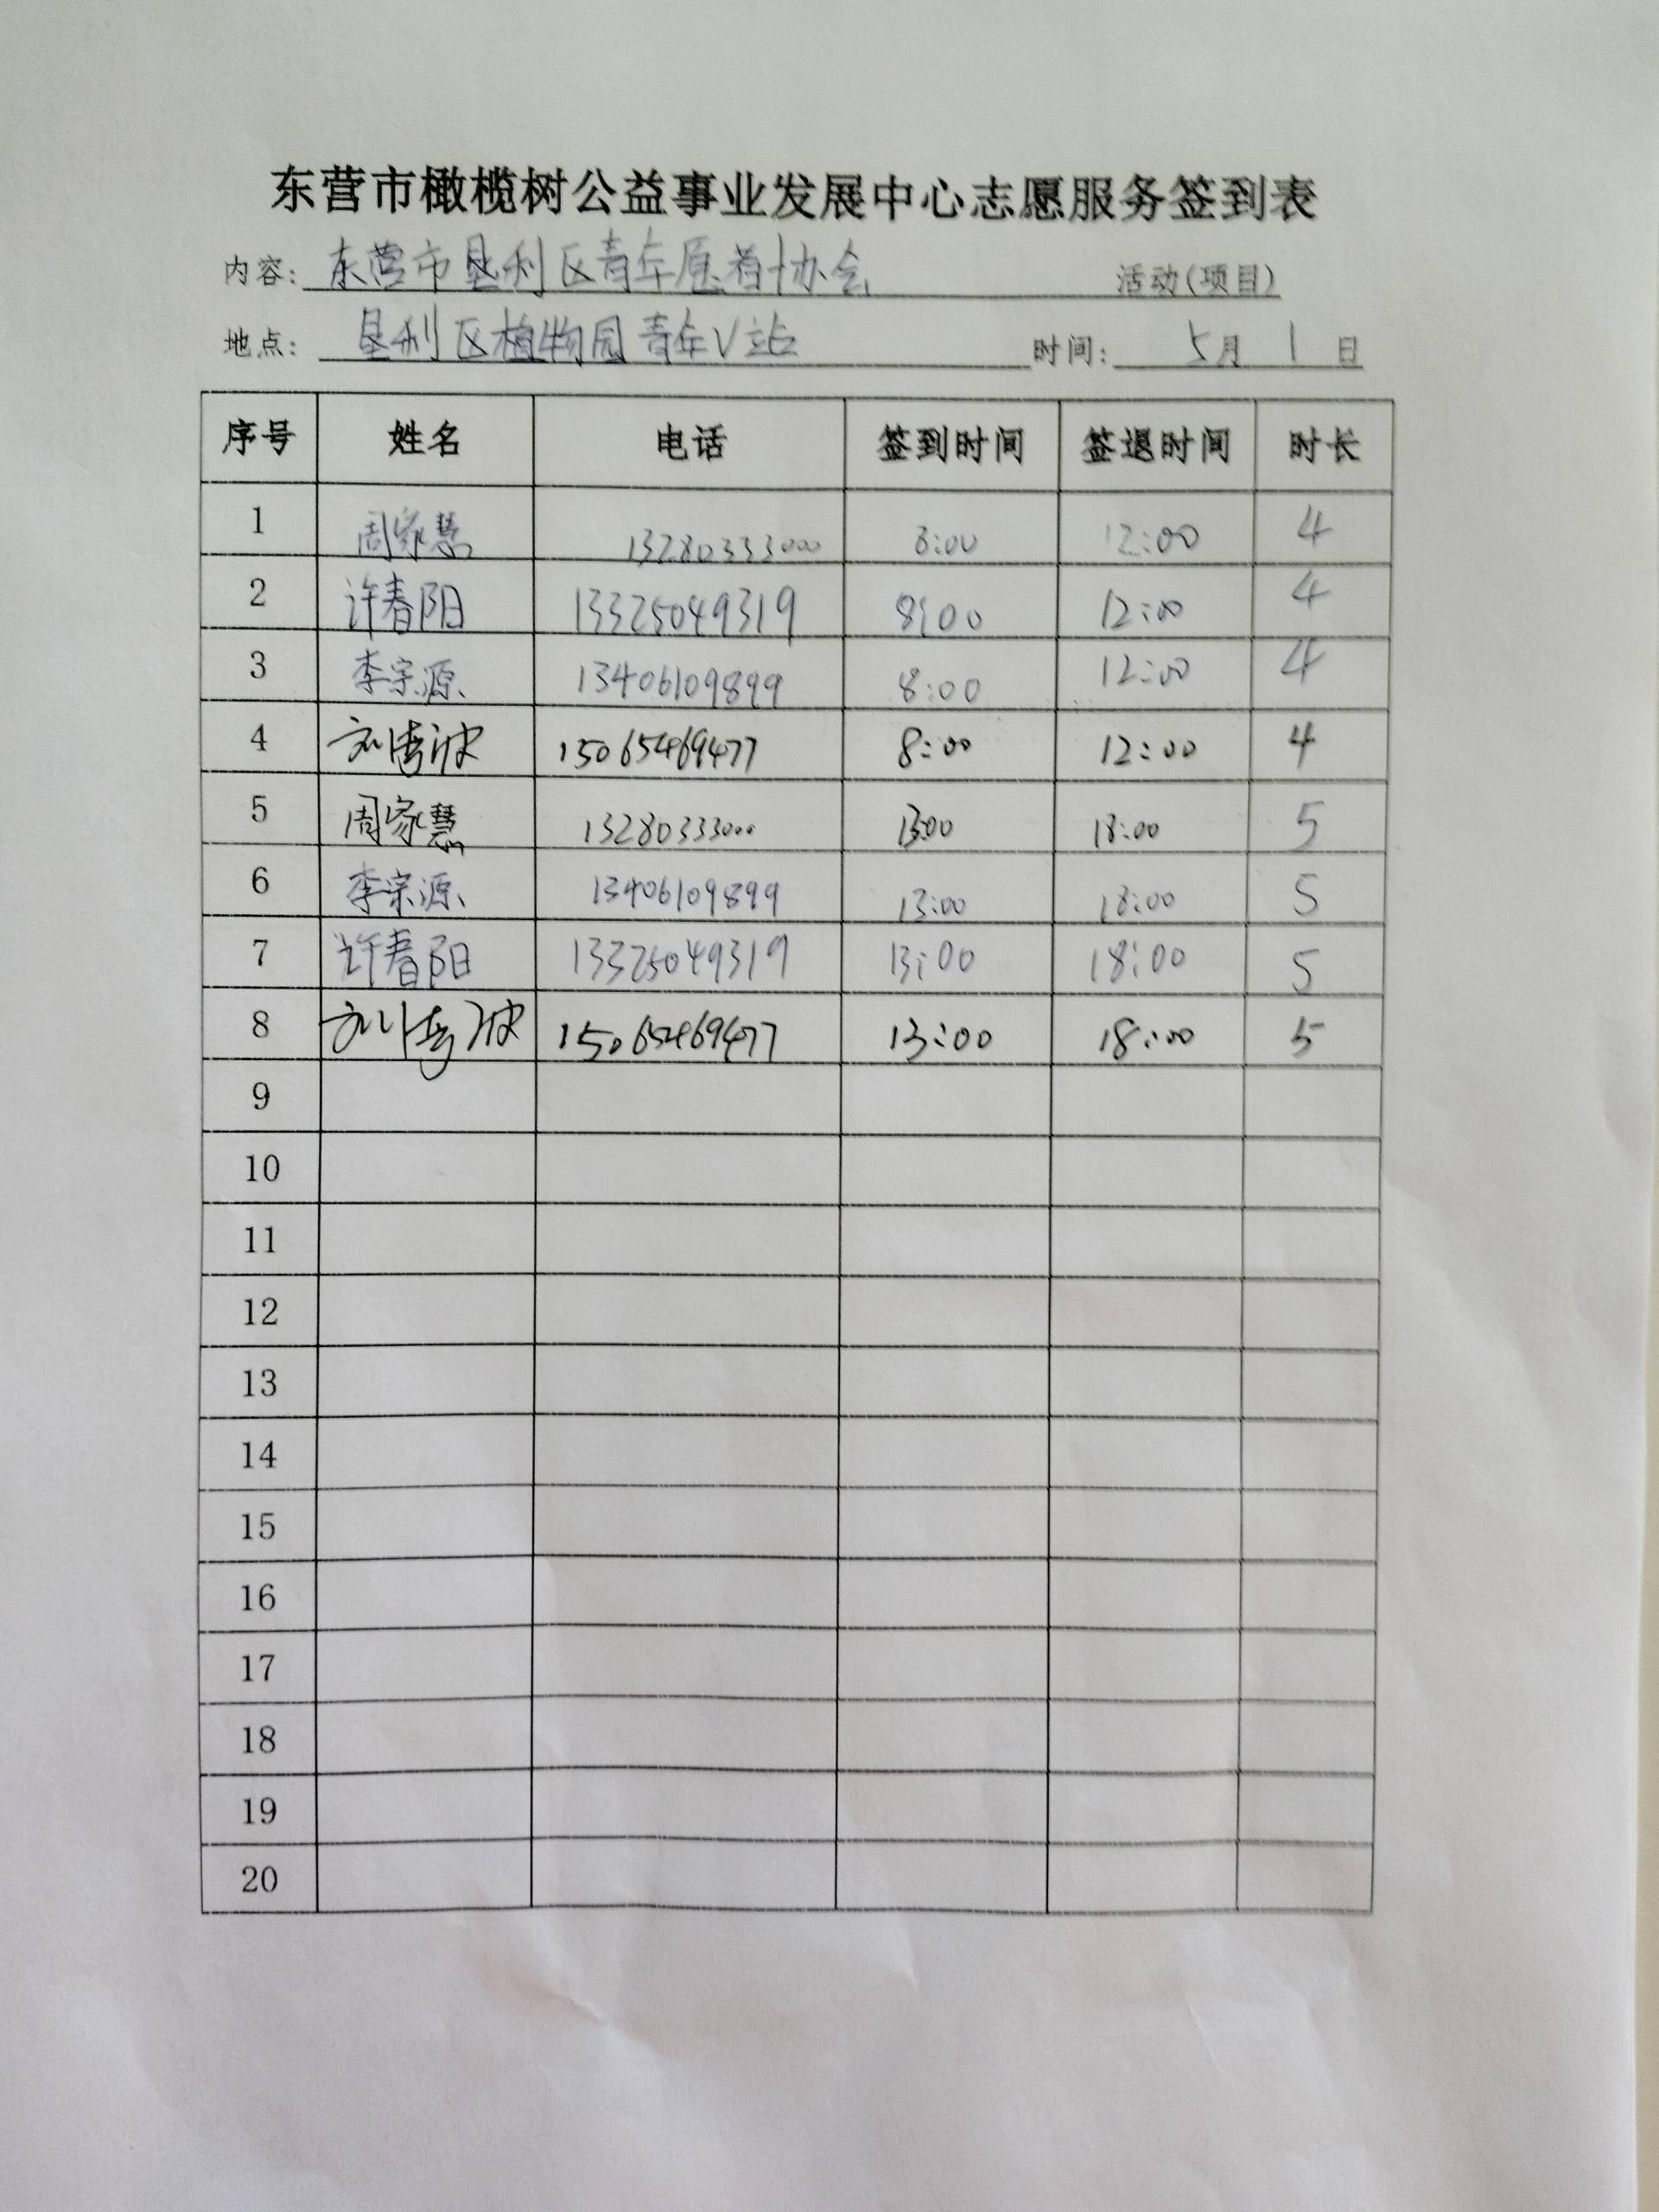 东营市橄榄树公益事业发展中心志愿服务签到表
内容: 东营市垦利区青年愿者协会 活动(项目)
地点: 垦利区植物园青年V站 时间: 5月 1 日
序号 姓名 电话 签到时间 签退时间 时长
1 周家慧 13280333000 8:00 12:00 4
2 许春阳 13325049319 8:00 12:00 4
3 李宗源 13406109899 8:00 12:00 4
4 15065469477 8:00 12:00 4
5 周家慧 13280333000 13:00 18:00 5
6 李宗源 13406109899 13:00 18:00 5
7 许春阳 13325049319 13:00 18:00 5
8 15065469477 13:00 18:00 5
9
10
11
12
13
14
15
16
17
18
19
20